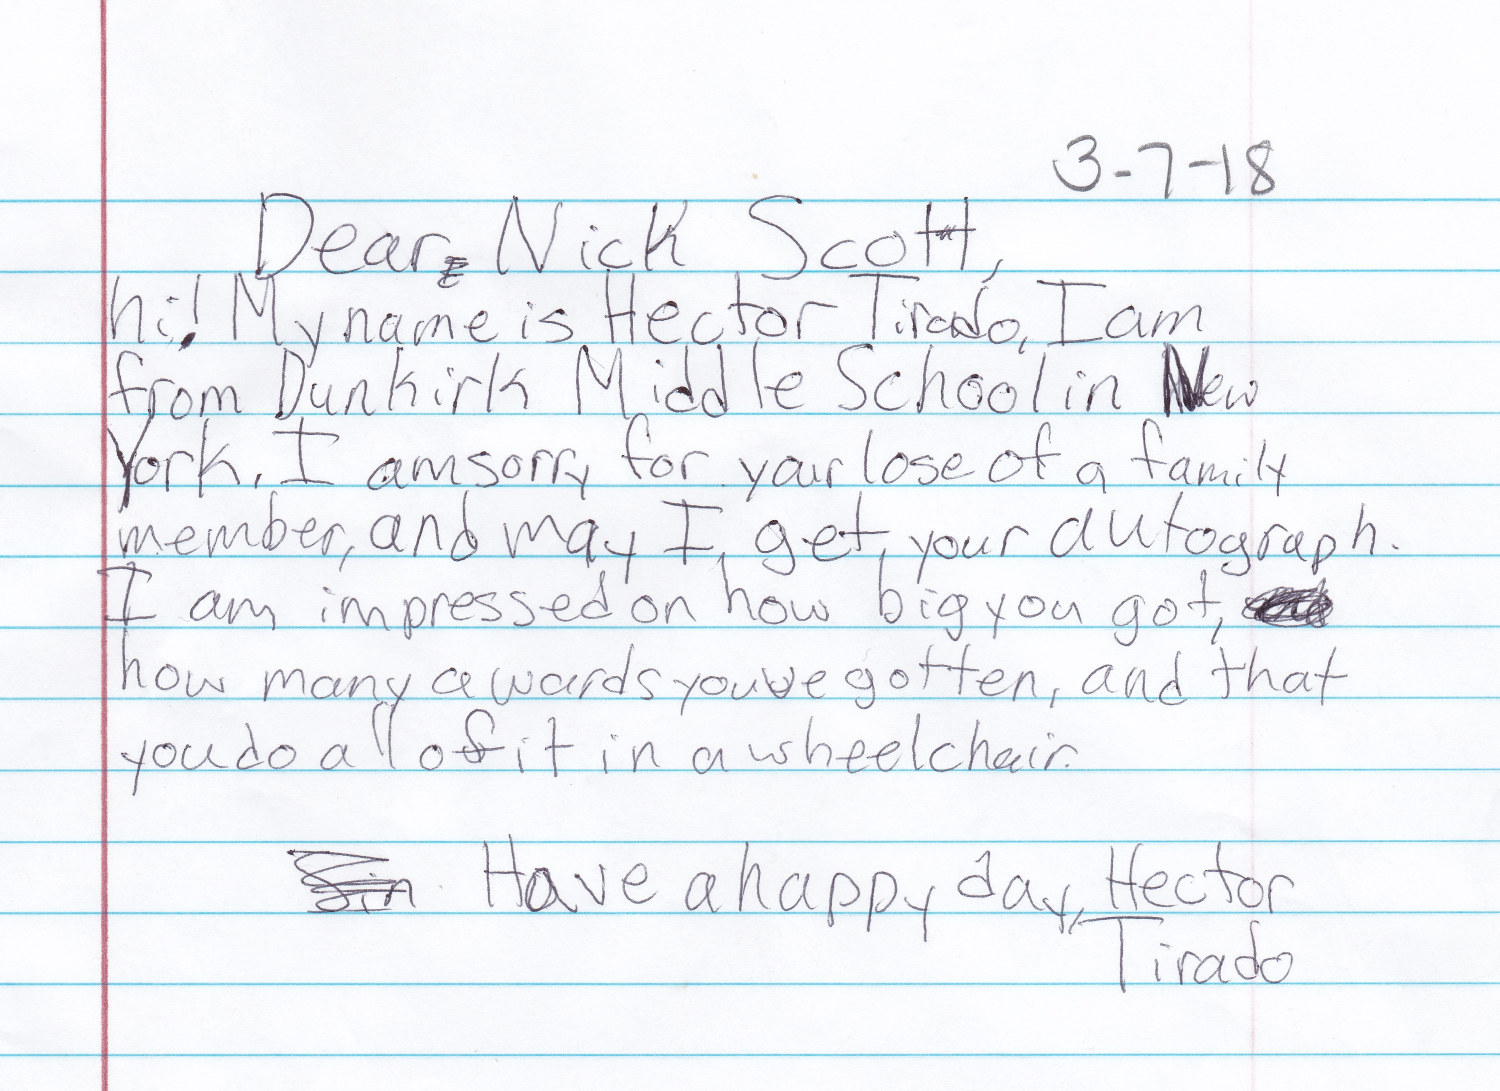 3-7-18
Dear, Nick Scott,
hi! My name is Hector Tirado, I am
from Dunkirk Middle School in New
York. I am sorry for your lose of a family
member, and may I, get, your autograph.
I am impressed on how big you got,
how many awards you've gotten, and that
you do all of it in a wheelchair.
Have a happy day, Hector
Tirado